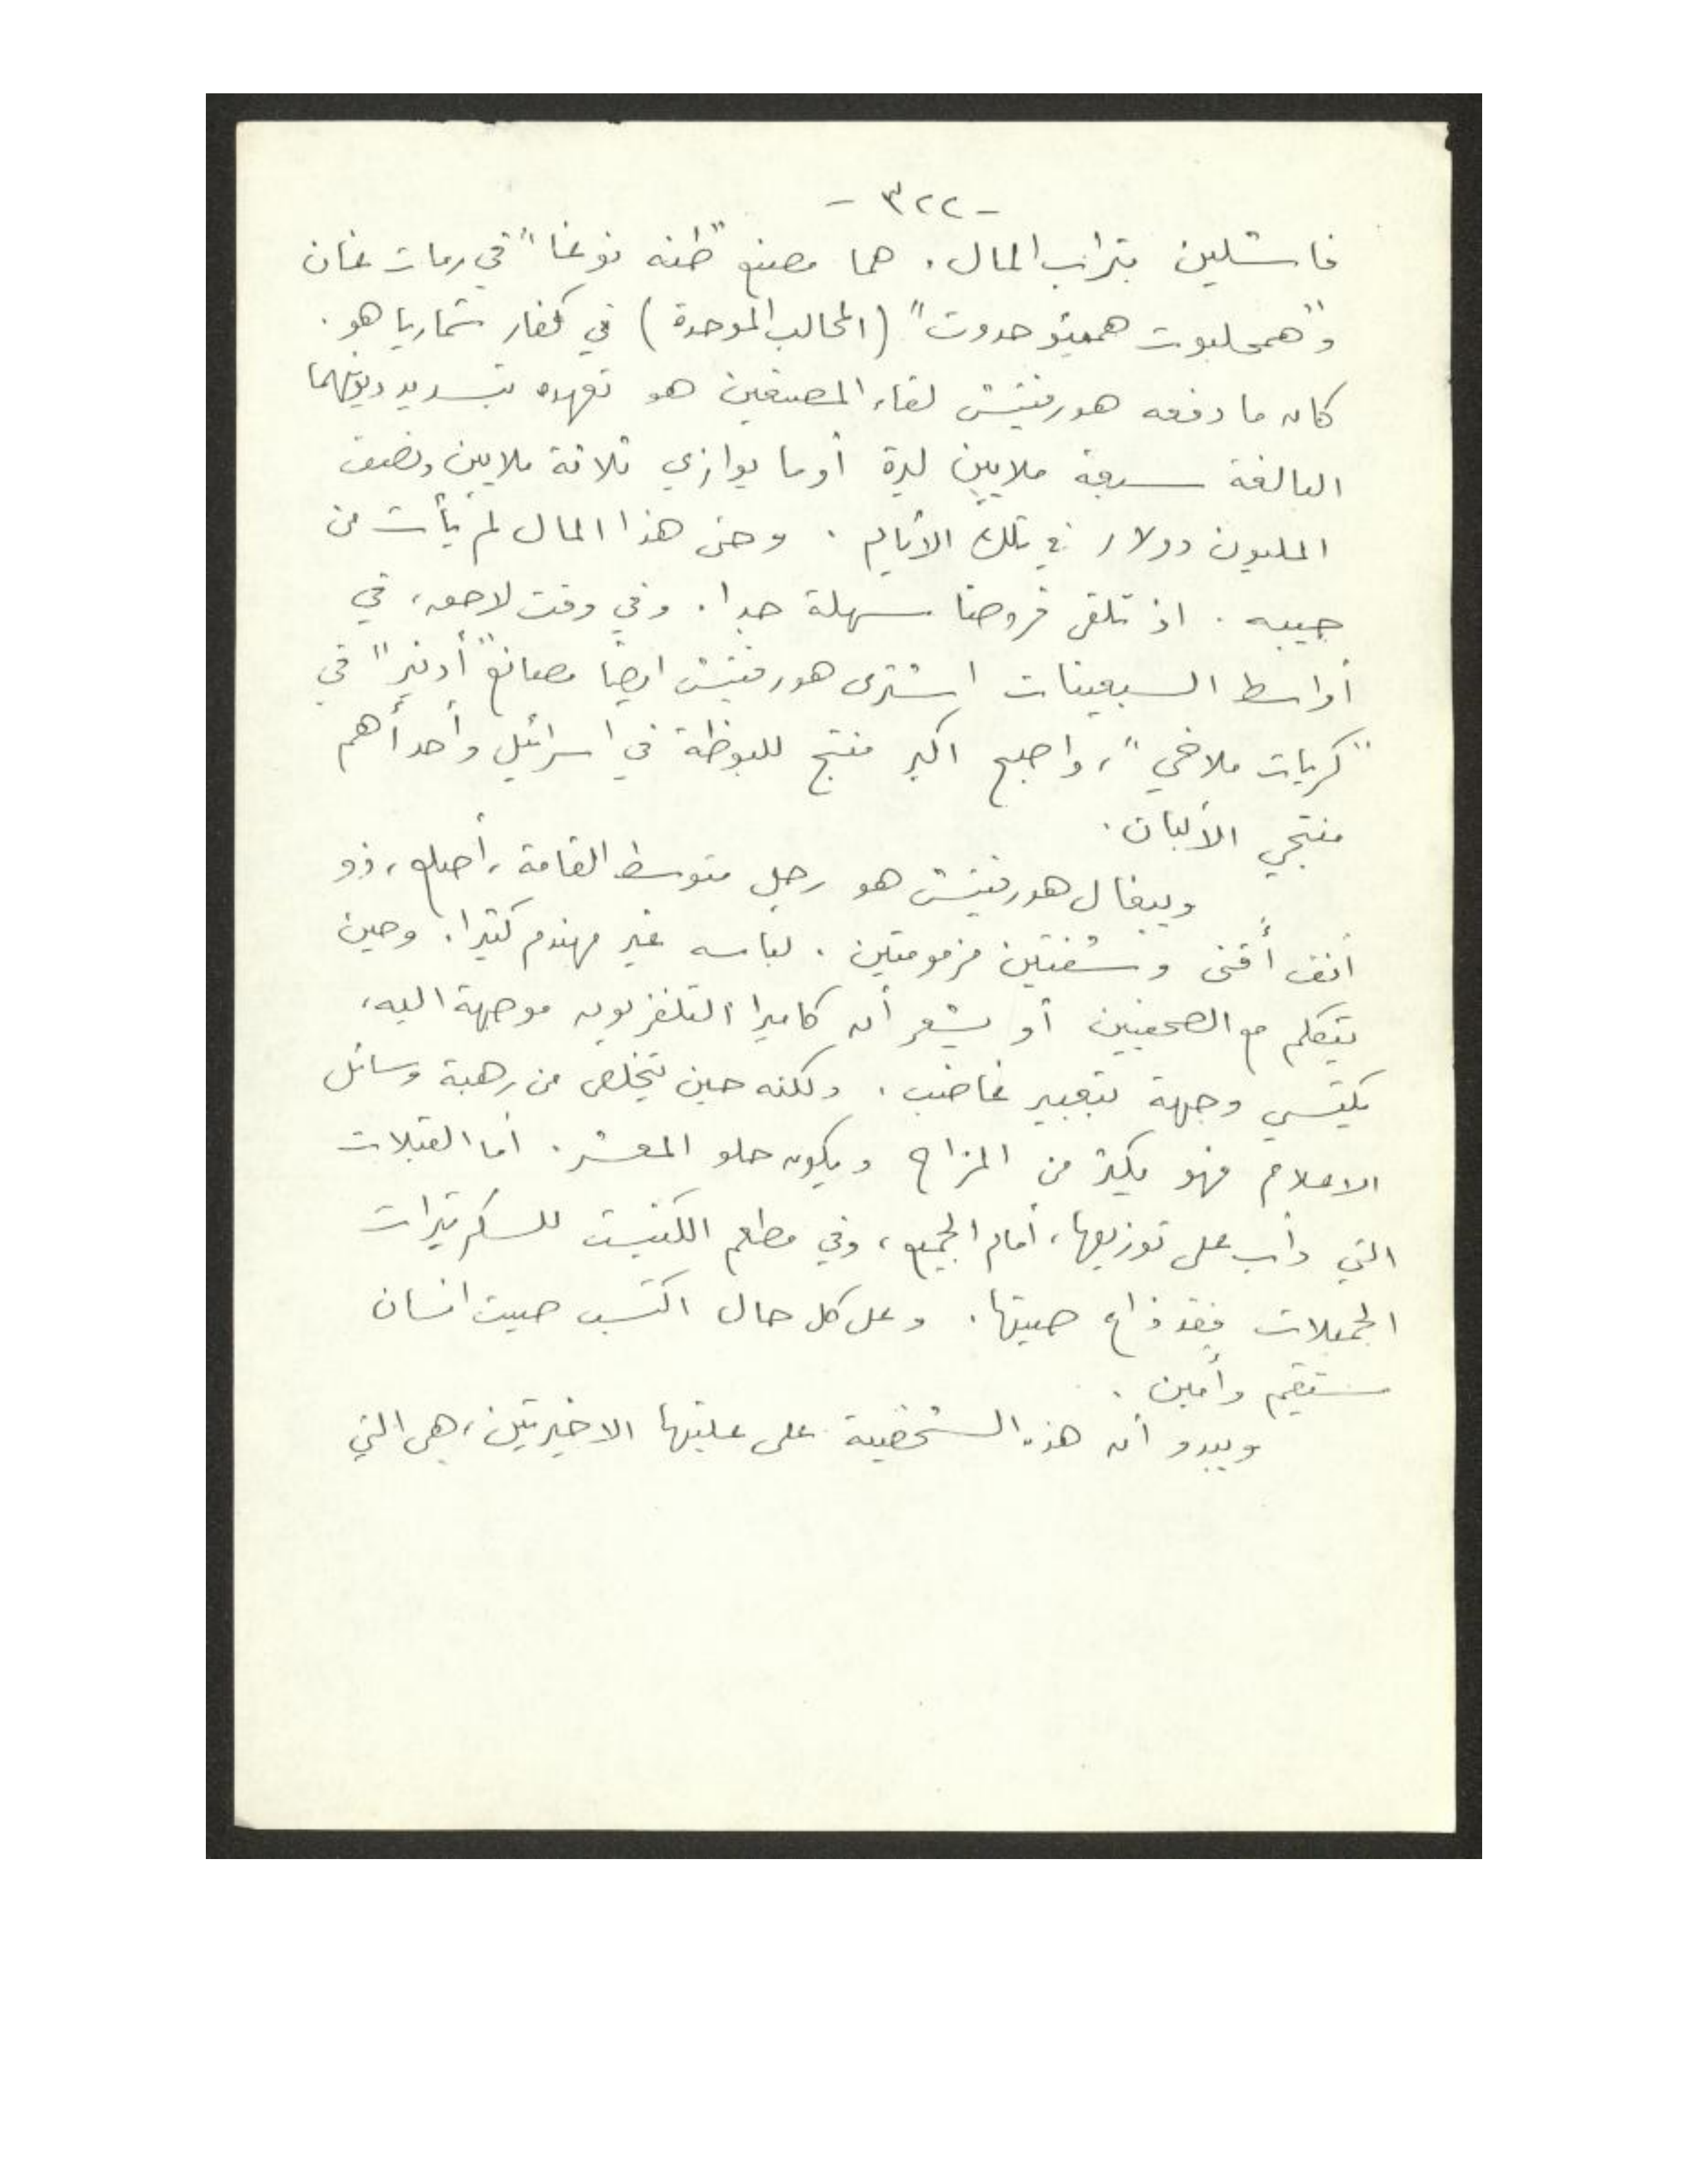 - ٣٢٢ -
فاشلين بتراب المال. هما مصنع "طنه نوغا" في رمات غان
و"همحلبوت همئوحدوت" (المحالب الموحدة) في كفار شمارياهو.
كان ما دفعه هورفيتش لقاء المصنعين هو تعهده بتسديد ديونهما
البالغة سبعة ملايين ليرة أو ما يوازي ثلاثة ملايين ونصف
المليون دولار في تلك الأيام. وحتى هذا المال لم يأت من
جيبه. اذ تلقى قروضا سهلة جدا. وفي وقت لاحق، في
أواسط السبعينات اشترى هورفيتش ايضا مصانع "أرتيك" في
"كريات ملاخي"، واصبح اكبر منتج للبوظة في اسرائيل وأحد أهم
منتجي الألبان.
ويغال هورفيتش هو رجل متوسط القامة، أصلع، ذو
أنف أقنى وشفتين مزمومتين. لباسه غير مهندم كثيرا. وحين
يتكلم مع الصحفيين أو يشعر أن كاميرا التلفزيون موجهة اليه،
يكتسي وجهة بتعبير غاضب. ولكنه حين يتخلص من رهبة وسائل
الاعلام فهو يكثر من المزاح ويكون حلو المعشر. أما القبلات
التي دأب على توزيعها، أمام الجميع، وفي مطعم الكنيست للسكرتيرات
الجميلات فقد ذاع صيتها. وعلى كل حال اكتسب صيت انسان
مستقيم وأمين.
ويبدو أن هذه الشخصية على علتيها الاخيرتين، هي التي